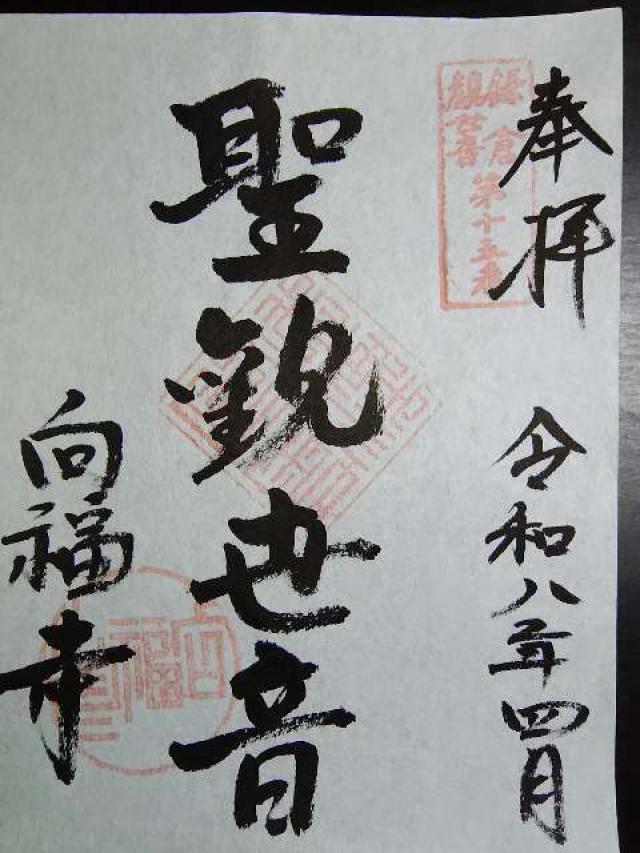 奉拝
令和八年四月
鎌倉第十五番
観世音
聖観世音
向福寺
向福寺